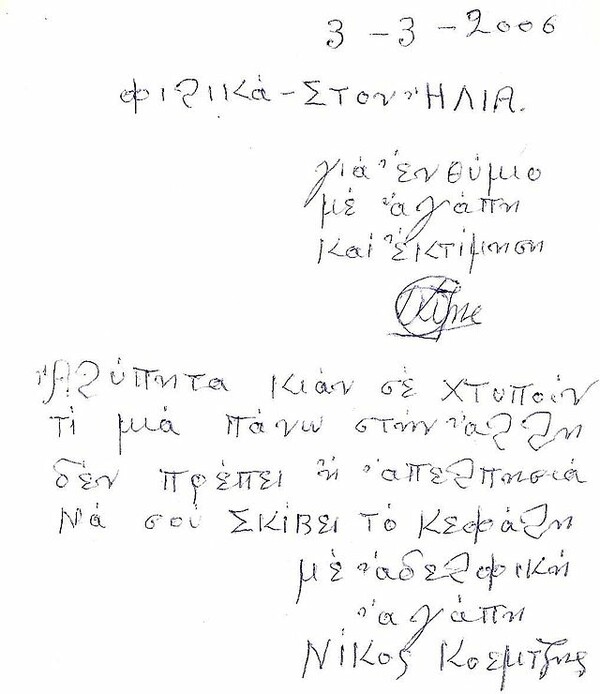 3 - 3 - 2006
Φιλικά - ΣΤΟΝ ἨΛΙΑ.
γιά ἐνθύμιο
μέ ἀγάπη
και ἐκτίμηση
Ἀλύπητα κιάν σέ χτυποῦν
τί μιά πάνω στήν ἀλλη
δέν πρέπει ἡ ἀπελπησιά
Νά σοῦ ΣΚΙΒΕΙ ΤΟ ΚΕΦάλη
μέ ἀδελφική
ἀγάπη
Νίκος Κοεμτζής